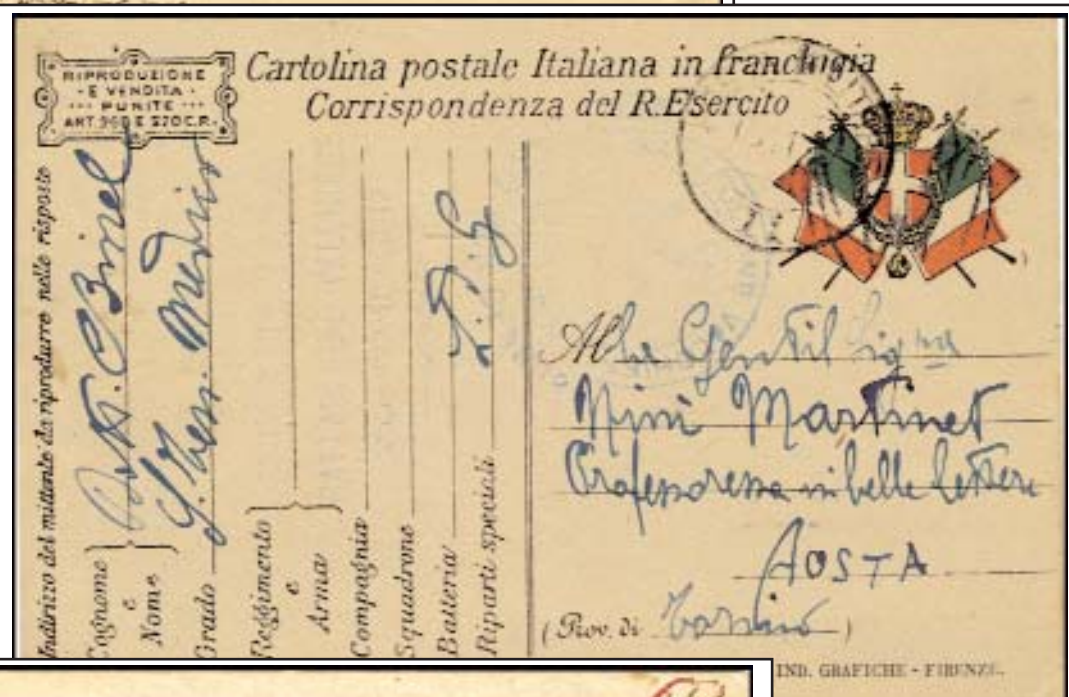 RIPRODUZIONE
E VENDITA
PUNITE
ART. E 520 C.P.
Cartolina postale Italiana in franchigia
Corrispondenza del R. Esercito
Indirizzo del mittente da riprodurre nelle risposte
Cognome e Nome
Dott. C Binel
Grado
S. Ten. Medico
Reggimento e Arma
Compagnia
Squadrone
Batteria
Riparti speciali
Alla Gentil sig.na
Nini Martinet
Professoressa in belle lettere
AOSTA
(Prov. di Torino)
IND. GRAFICHE - FIRENZE.